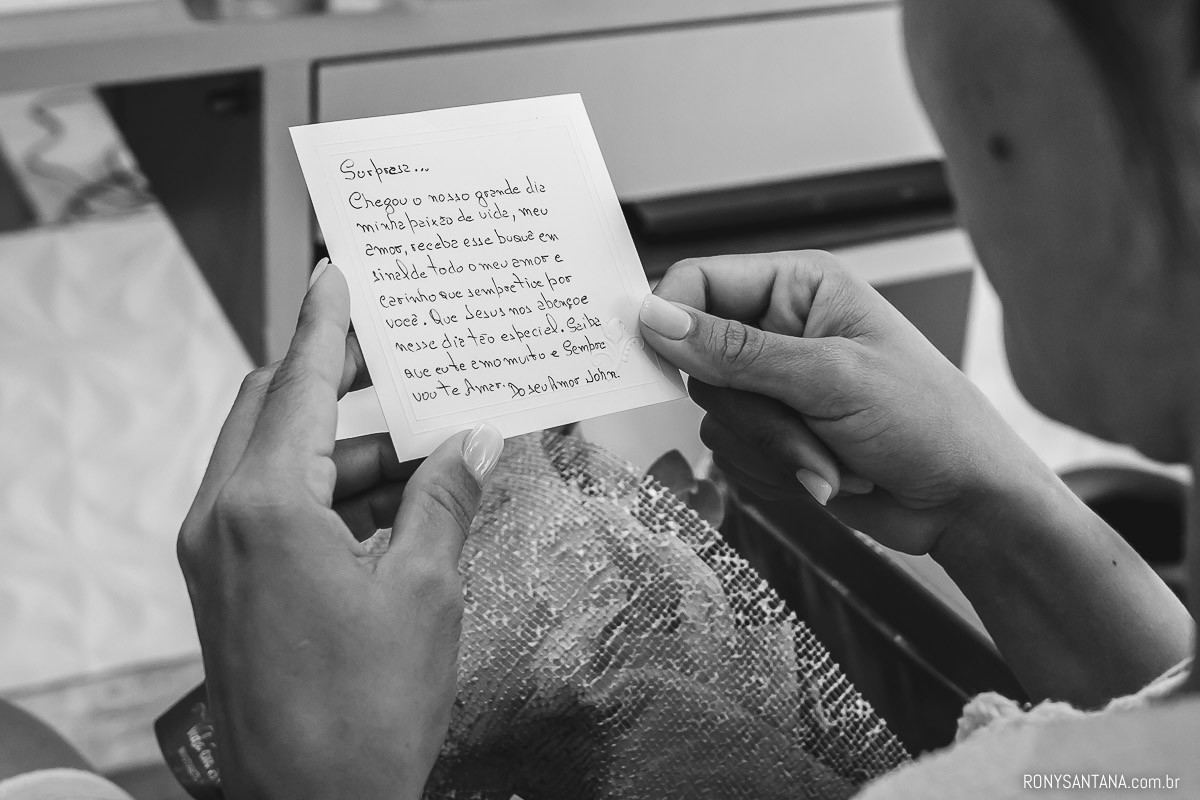 Surpresa...
Chegou o nosso grande dia
minha paixão de vida, meu
amor, receba esse buquê em
sinal de todo o meu amor e
carinho que sempre tive por
você. Que Jesus nos abençoe
nesse dia tão especial. Saiba
que eu te amo muito e Sempre
vou te Amar. Do seu Amor John.
RONYSANTANA.com.br